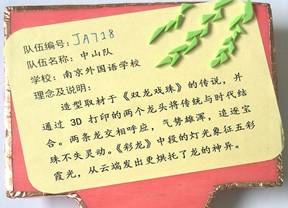 队伍编号：JA718
队伍名称：中山队
学校：南京外国语学校
理念及说明：
造型取材于《双龙戏珠》的传说，并
通过 3D 打印的两个龙头将传统与时代结
合。两条龙交相呼应，气势雄浑，追逐宝
珠不失灵动。《彩龙》中段的灯光象征五彩
霞光，从云端发出更烘托了龙的神异。